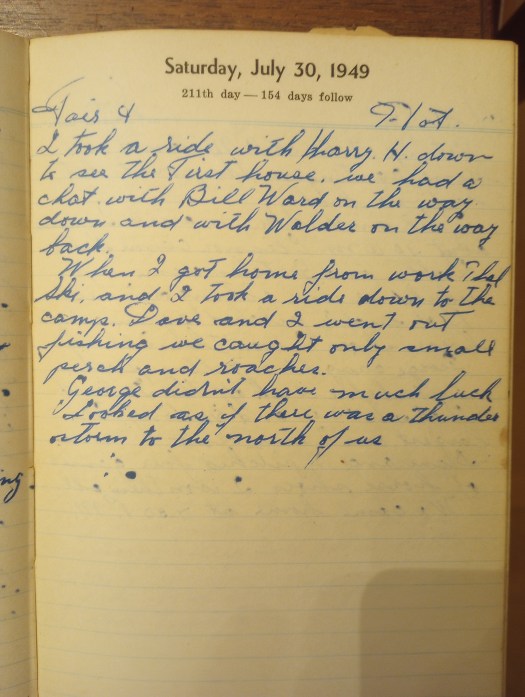 Saturday, July 30, 1949
211th day — 154 days follow
Fair & Hot.
I took a ride with Harry. H. down
to see the First house. we had a
chat with Bill Ward on the way
down and with Walder on the way
back.
When I got home from work Thel
Ski, and I took a ride down to the
camp. Dave and I went out
fishing we caught only small
perch and roaches.
George didn't have much luck
Looked as if there was a thunder
storm to the north of us
ng